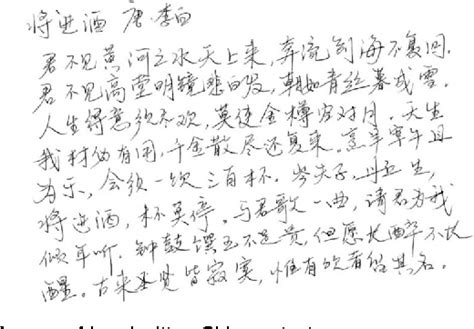 将进酒 唐·李白
君不见黄河之水天上来,奔流到海不复回.
君不见高堂明镜悲白发,朝如青丝暮成雪.
人生得意须尽欢,莫使金樽空对月.天生
我材必有用,千金散尽还复来.烹羊宰牛且
为乐,会须一饮三百杯.岑夫子,丹丘生,
将进酒,杯莫停.与君歌一曲,请君为我
倾耳听.钟鼓馔玉不足贵,但愿长醉不长
醒.古来圣贤皆寂寞,惟有饮者留其名.